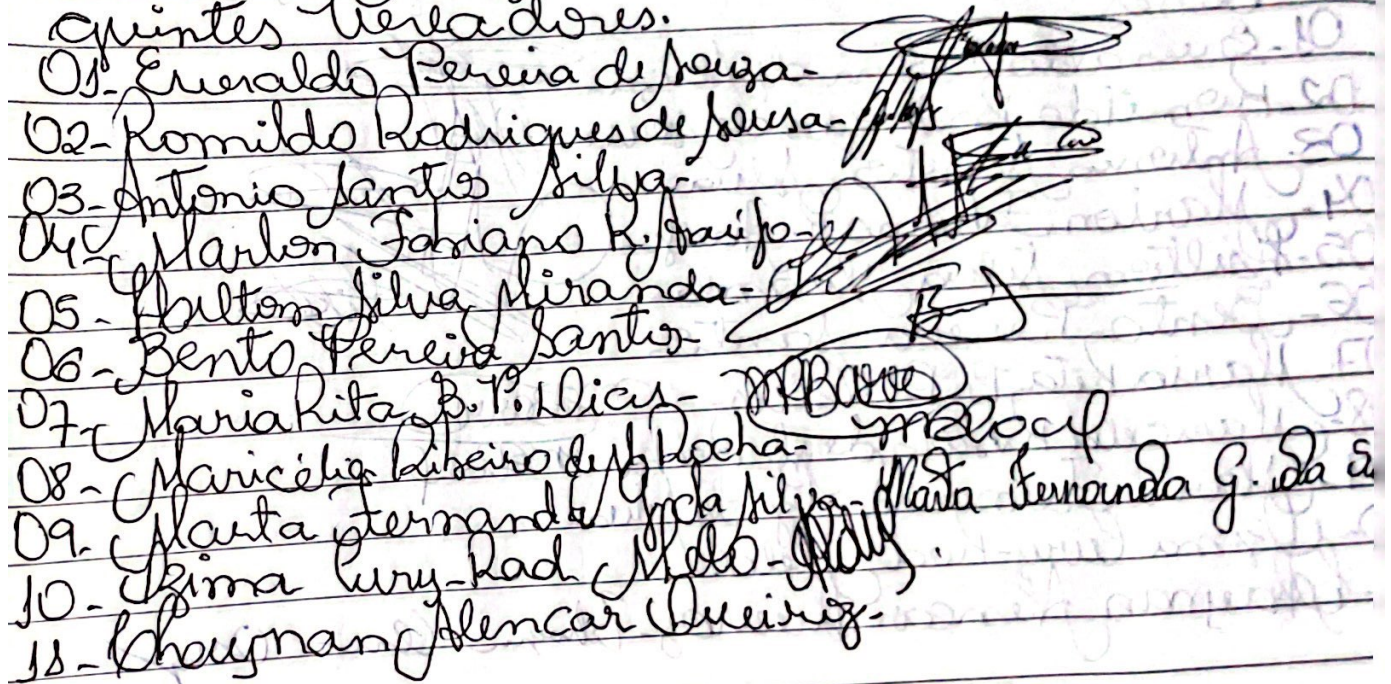 quintes Vereadores.
01- Eueraldo Pereira de Souza-
02- Romildo Rodrigues de Sousa-
03- Antonio Santos Silva-
04- Marlon Fabiano R. Araújo-
05- Hailton Silva Miranda-
06- Bento Pereira Santos-
07- Maria Rita B. P. Dias-
08- Maricélia Ribeiro de S. Rocha-
09- Marta Fernanda G. da Silva- Marta Fernanda G. da S
10- Izima Cury-Rad Melo-
11- Alencar Queiroz-